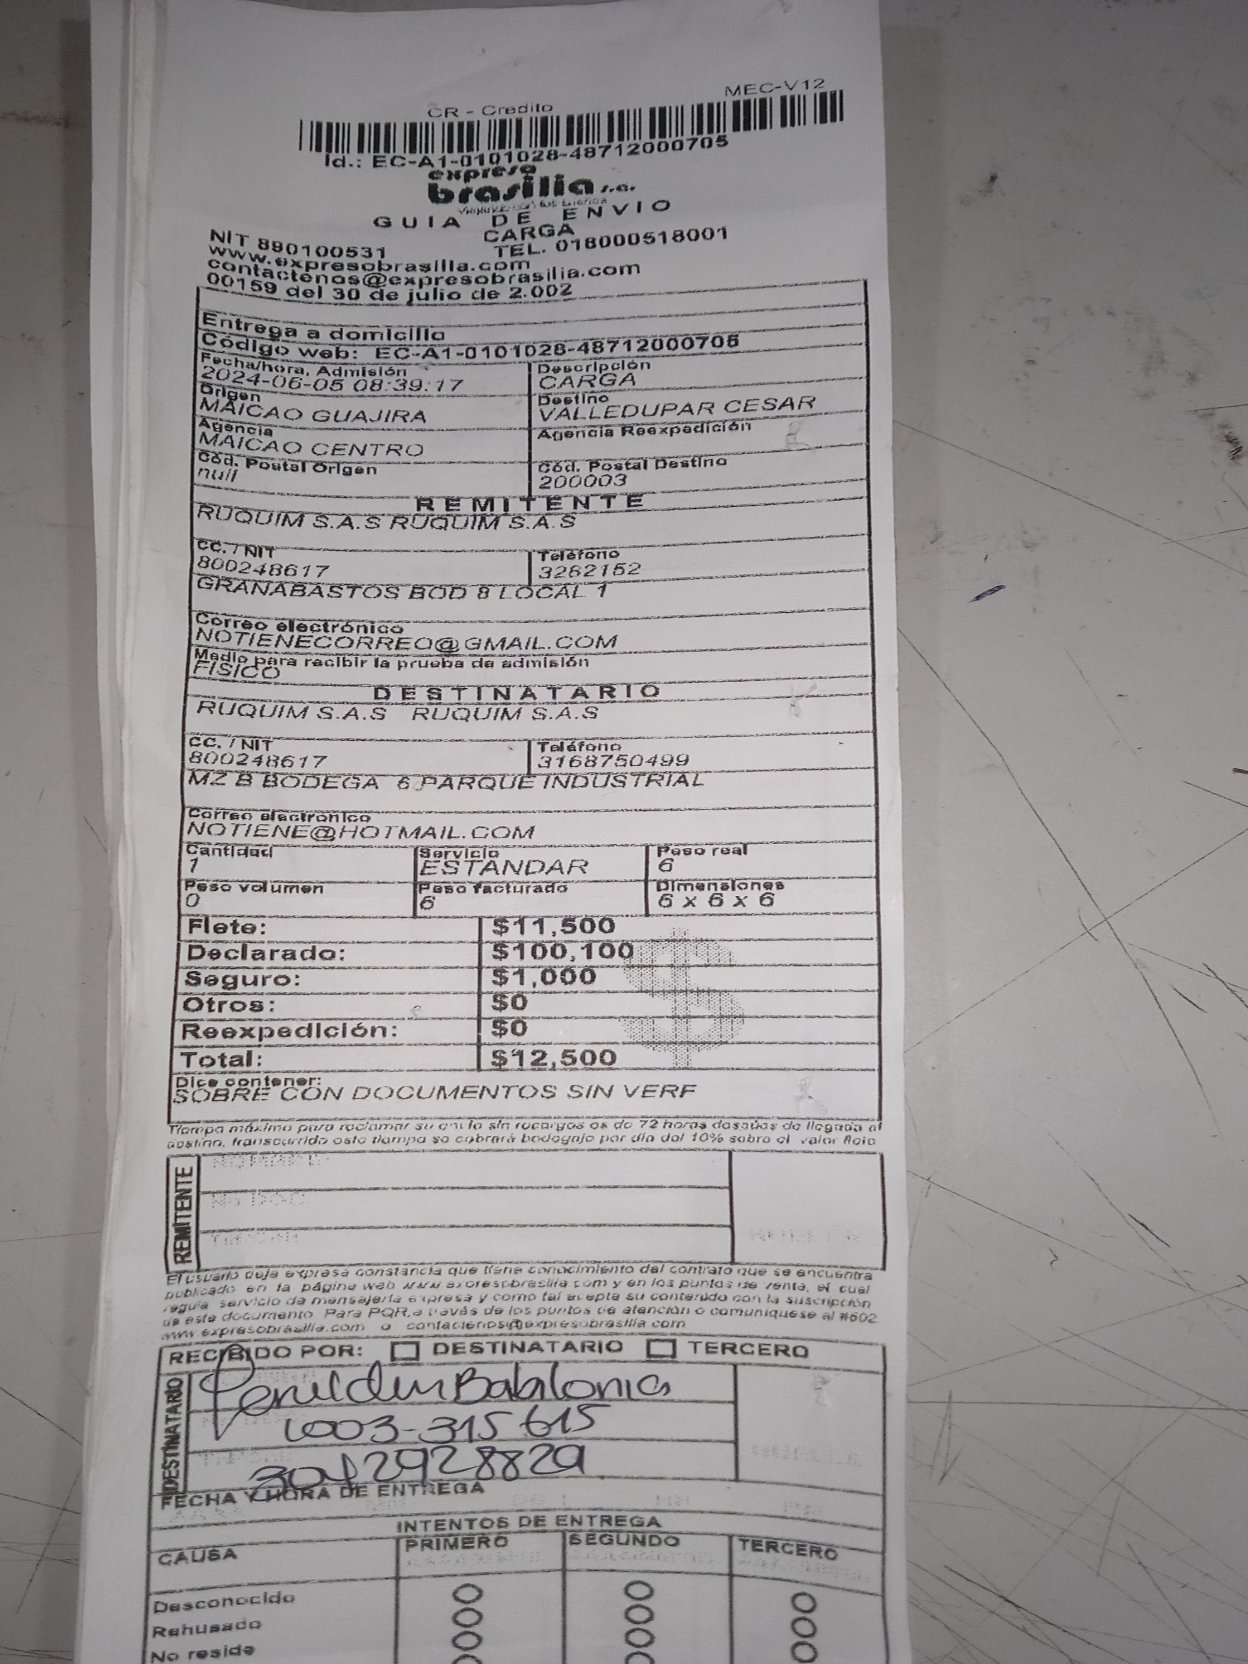 MEC-V12
CR - Credito
Id.: EC-A1-0101028-48712000705
expreso
brasilia s.a.
GUIA DE ENVIO
CARGA
NIT 890100531 TEL. 018000518001
www.expresobrasilia.com
contactenos@expresobrasilia.com
00159 del 30 de julio de 2.002
Entrega a domicilio
Código web: EC-A1-0101028-48712000705
Fecha/hora, Admisión Descripción
2024-06-05 08:39:17 CARGA
Origen Destino
MAICAO GUAJIRA VALLEDUPAR CESAR
Agencia Agencia Reexpedición
MAICAO CENTRO
Cód. Postal Origen Cód. Postal Destino
null 200003
REMITENTE
RUQUIM S.A.S RUQUIM S.A.S
CC. / NIT Teléfono
800248617 3282152
GRANABASTOS BOD 8 LOCAL 1
Correo electrónico
NOTIENECORREO@GMAIL.COM
Medio para recibir la prueba de admisión
FISICO
DESTINATARIO
RUQUIM S.A.S RUQUIM S.A.S
CC. / NIT Teléfono
800248617 3168750499
MZ B BODEGA 6 PARQUE INDUSTRIAL
Correo electrónico
NOTIENE@HOTMAIL.COM
Cantidad Servicio Peso real
1 ESTANDAR 6
Peso volumen Peso facturado Dimensiones
0 6 6 x 6 x 6
Flete: $11,500
Declarado: $100,100
Seguro: $1,000
Otros: $0
Reexpedición: $0
Total: $12,500
Dice contener:
SOBRE CON DOCUMENTOS SIN VERF
Tiempo máximo para reclamar su envío sin recargos es de 72 horas después de llegada al
destino, transcurrido este tiempo se cobrará bodegaje por día del 10% sobre el valor flete
REMITENTE
El usuario deja expresa constancia que tiene conocimiento del contrato que se encuentra
publicado en la página web www.expresobrasilia.com y en los puntos de venta, el cual
regula servicio de mensajería expresa y como tal acepta su contenido con la suscripción
de este documento. Para PQR,a través de los puntos de atención o comuniquese al #602
www.expresobrasilia.com o contactenos@expresobrasilia.com
RECIBIDO POR: DESTINATARIO TERCERO
DESTINATARIO
Babilonia
1003-315 615
3042928829
FECHA Y HORA DE ENTREGA
INTENTOS DE ENTREGA
CAUSA PRIMERO SEGUNDO TERCERO
Desconocido
Rehusado
No reside